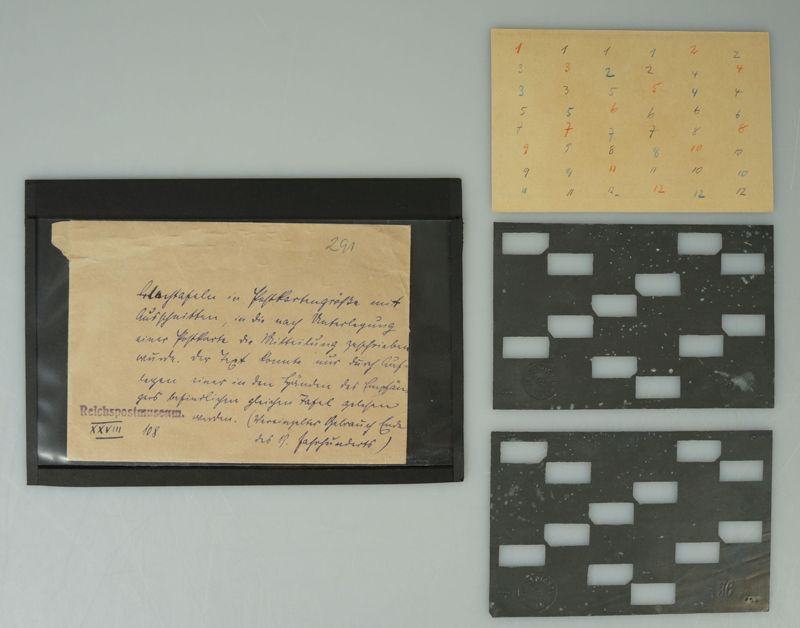 291
Blechtafeln in Postkartengröße mit
Ausschnitten, in die nach Unterlegung
einer Postkarte die Mitteilung geschrieben
wurde. Der Text konnte nur durch Auf-
legen einer in den Händen des Empfän-
gers befindlichen gleichen Tafel gelesen
werden. (Vereinzelter Gebrauch Ende
des 19. Jahrhunderts)
Reichspostmuseum.
XXVIII 108
1 1 1 1 2 2
3 3 2 2 4 4
3 3 5 5 4 4
5 5 6 6 6 6
7 7 7 7 8 8
9 9 8 8 10 10
9 9 11 11 10 10
11 11 12 12 12 12